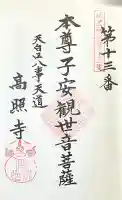 第十三番
本尊子安観世音菩薩
天白区八事天道
高照寺